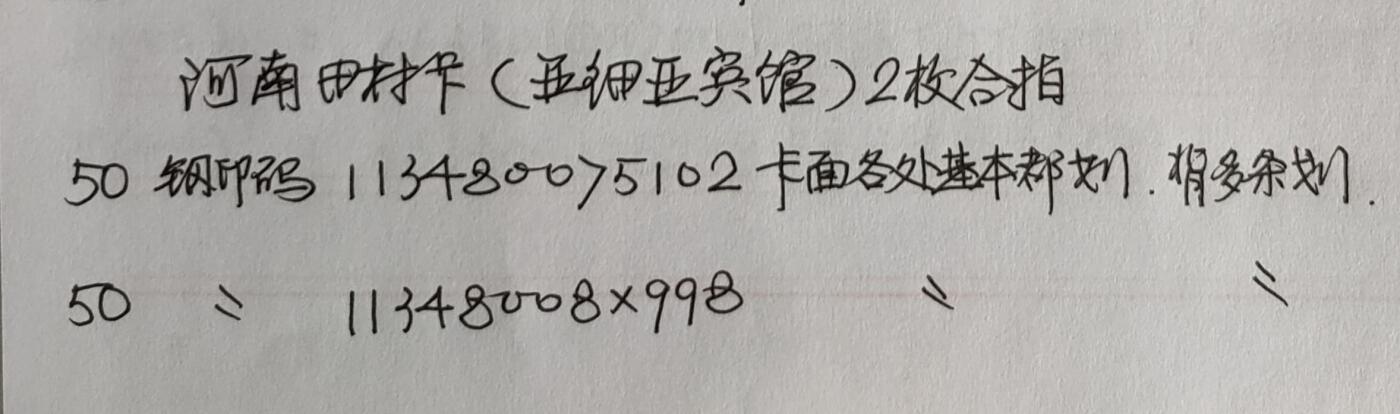 河南田村卡(亚细亚宾馆)2枚合拍
50 钢印码 113480075102 卡面各处基本都划.背多条划.
50 〃 11348008×998 〃 〃